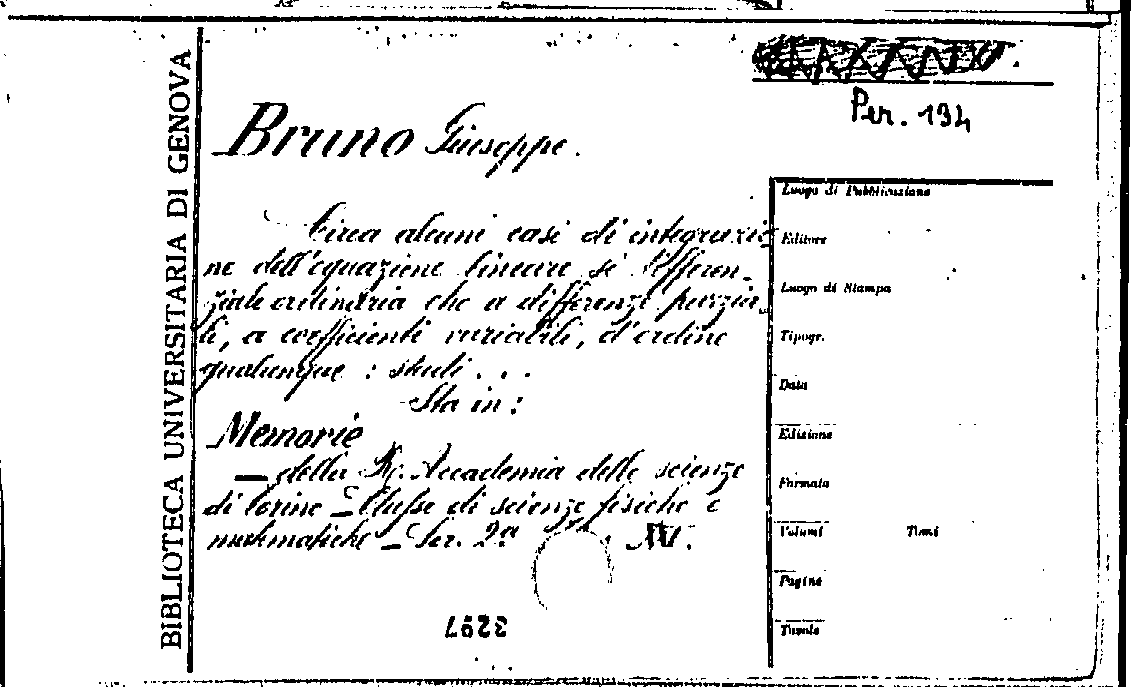 BIBLIOTECA UNIVERSITARIA DI GENOVA
Per. 134
Bruno Giuseppe.
Circa alcuni casi di integrazio
ne dell'equazione lineare, sì differen-
ziale ordinaria che a differenze parzia-
li, a coefficienti variabili, d'ordine
qualunque : studi . . .
Sta in :
Memorie
— della R. Accademia delle scienze
di Torino - Classe di scienze fisiche e
matematiche - Ser. 2ª
3297
Luogo di Pubblicazione
Editore
Luogo di Stampa
Tipogr.
Data
Edizione
Formato
Volumi Tomi
Pagine
Tavole